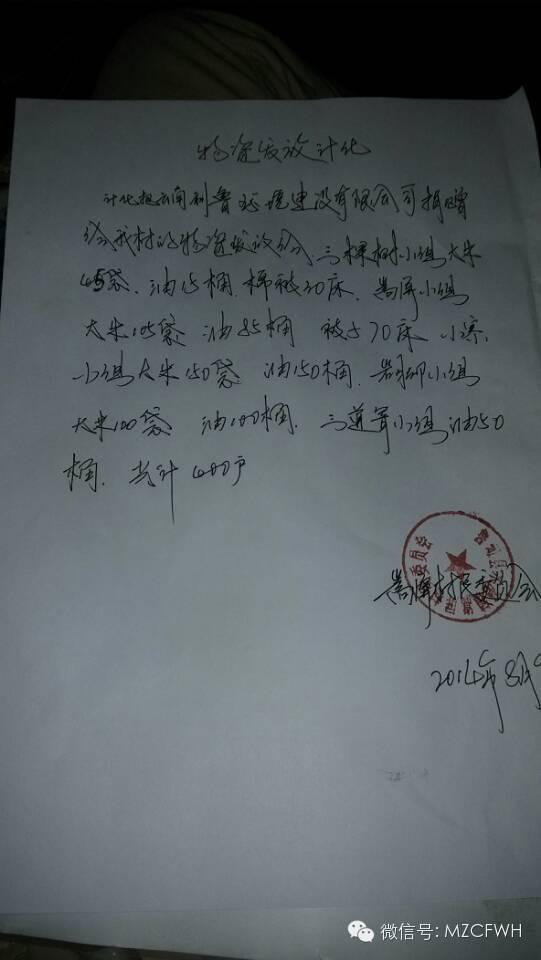 物资发放计化
计化把云南利鲁环境建设有限公司捐赠
给我村的物资发放给,三棵树小组大米
45袋、油15桶,棉被30床、营屏小组
大米105袋 油85桶 被子70床 小寨
小组大米150袋 油150桶、岩脚小组
大米100袋 油100桶、三道箐小组油50
桶、共计400户
村民委员会
2014年8月
微信号: MZCFWH